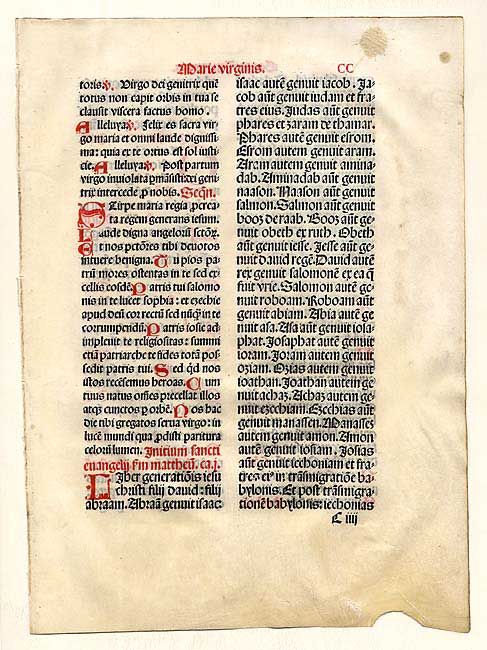 Marie virginis.
CC
toris. ℣. Virgo dei genitrix quē
totus non capit orbis in tua se
clausit viscera factus homo.
Alleluya. ℣. Felix es sacra vir
go maria et omni laude dignissi
ma: quia ex te ortus est sol iusti
cie. Alleluya. ℣. Post partum
virgo inuiolata pmāsisti: dei geni
trix intercede p nobis. Seqn̄.
Stirpe maria regia pcrea
ta regem generans iesum.
Laude digna angeloꝝ sctōꝝ.
Et nos pctōres tibi deuotos
intuere benigna. Tu pios pa
trū mores ostentas in te sed ex
cellis eosdē. Patris tui salomo
nis in te lucet sophia: et ezechie
apud deū cor rectū sed nūq̄ in te
corrumpendū. Patris iosie ad
impleuit te religiositas: summi
etiā patriarche te fides totā pos
sedit patris tui. Sed qd nos
istos recēsemus heroas. Cum
tuus natus oēs precellat illos
atq̄ cunctos p orbē. Nos hac
die tibi gregatos serua virgo: in
lucē mundi qua pdisti paritura
celoꝝ lumen. Initium sancti
euangelij fm mattheū. ca. j.
Liber generatiōis iesu
christi filij dauid: filij
abraam. Abraā genuit isaac:
isaac autē genuit iacob. Ja-
cob aūt genuit iudam et fra-
tres eius. Judas aūt genuit
phares et zaram de thamar.
Phares autē genuit esrom.
Esrom autem genuit aram.
Aram autem genuit amina-
dab. Aminadab aūt genuit
naason. Naason aūt genuit
salmon. Salmon aūt genuit
booz de raab. Booz aūt ge-
nuit obeth ex ruth. Obeth
aūt genuit iesse. Jesse aūt ge-
nuit dauid regē. Dauid autē
rex genuit salomonē ex ea q̄
fuit vrie. Salomon autē ge-
nuit roboam. Roboam aūt
genuit abiam. Abia autē ge-
nuit asa. Asa aūt genuit iosa-
phat. Josaphat autē genuit
ioram. Joram autem genuit
oziam. Ozias autem genuit
ioathan. Joathan autem ge-
nuit achaz. Achaz autem ge-
nuit ezechiam. Ezechias aūt
genuit manassen. Manasses
autem genuit amon. Amon
autē genuit iosiam. Josias
aūt genuit iechoniam et fra-
tres eiꝰ in trāsmigratiōe ba-
bylonis. Et post trāsmigra-
tionē babylonis: iechonias
C iiij